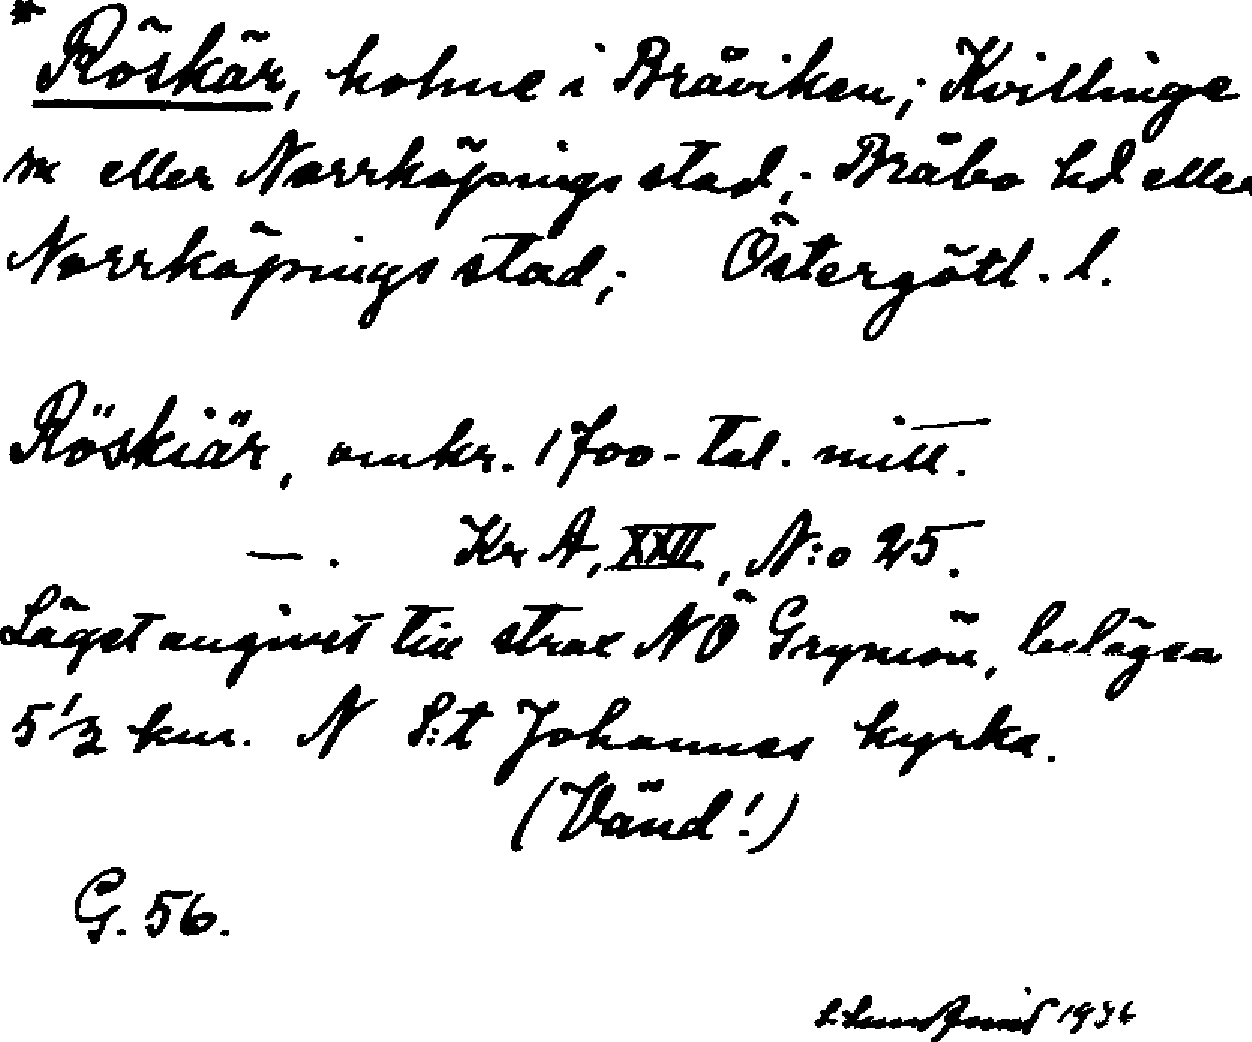 * Röskär, holme i Bråviken; Kvillinge
sn eller Norrköpings stad; Bråbo hd eller
Norrköpings stad; Östergötl. l.
Röskiär, omkr. 1700-tal. mitt.
—. Kr A, XXII, N:o 25.
Läget angivet till strax NÖ Grymön, belägen
5 1/2 km. N S:t Johannes kyrka.
(Vänd!)
G. 56.
1936